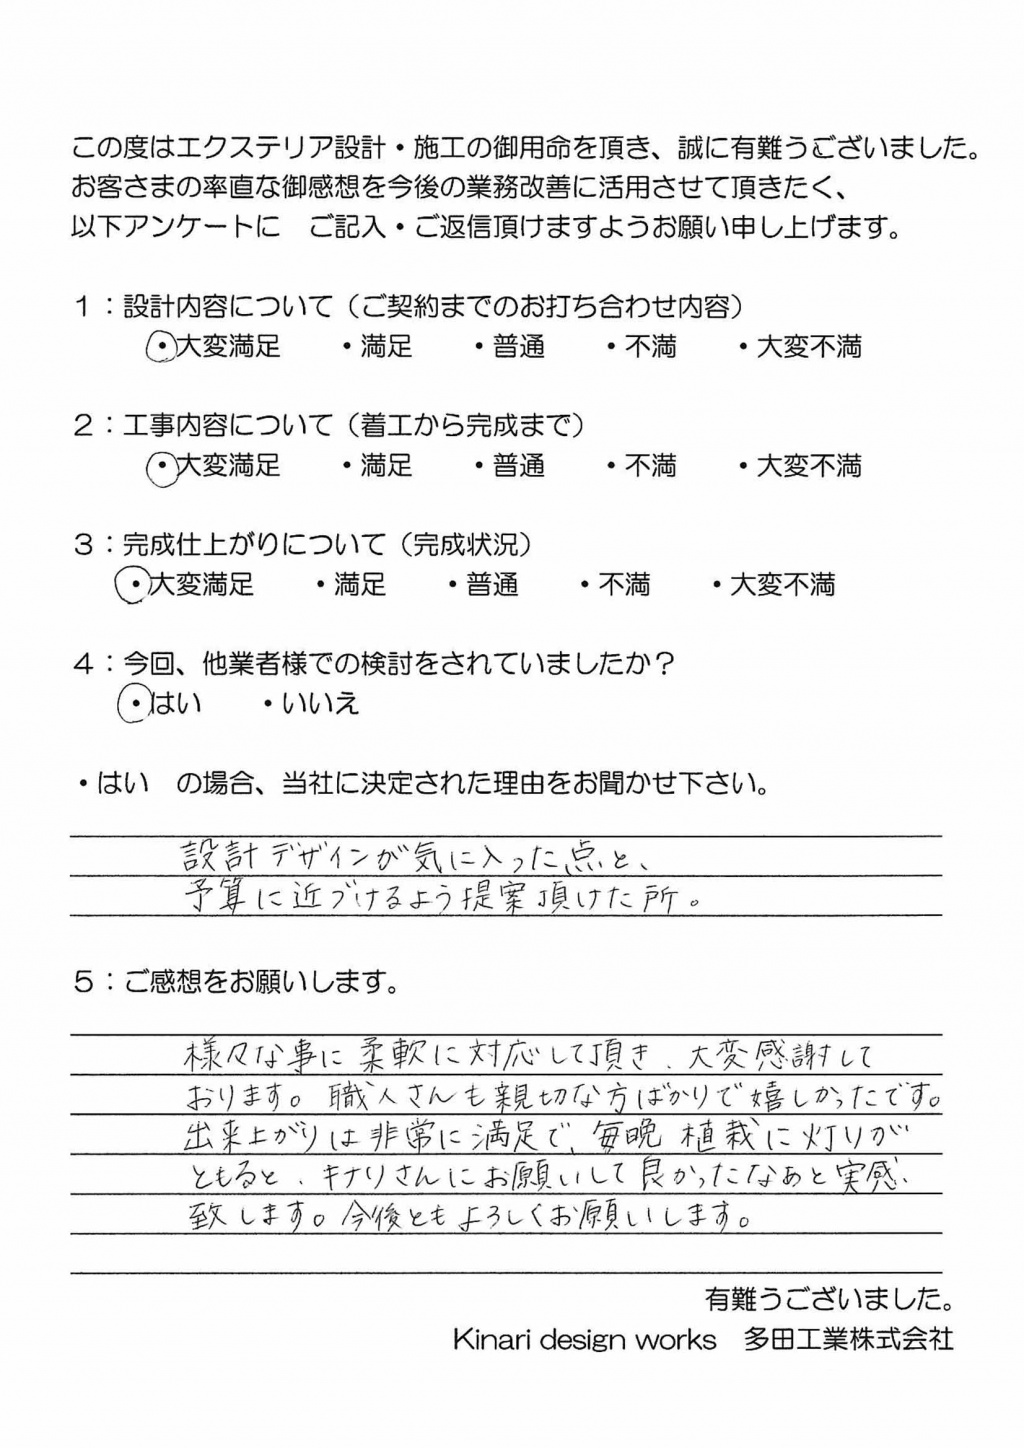 この度はエクステリア設計・施工の御用命を頂き、誠に有難うございました。
お客さまの率直な御感想を今後の業務改善に活用させて頂きたく、
以下アンケートに　ご記入・ご返信頂けますようお願い申し上げます。
１：設計内容について（ご契約までのお打ち合わせ内容）
・大変満足　・満足　・普通　・不満　・大変不満
２：工事内容について（着工から完成まで）
・大変満足　・満足　・普通　・不満　・大変不満
３：完成仕上がりについて（完成状況）
・大変満足　・満足　・普通　・不満　・大変不満
４：今回、他業者様での検討をされていましたか？
・はい　・いいえ
・はい　の場合、当社に決定された理由をお聞かせ下さい。
設計デザインが気に入った点と、
予算に近づけるよう提案頂けた所。
５：ご感想をお願いします。
様々な事に柔軟に対応して頂き、大変感謝して
おります。職人さんも親切な方ばかりで嬉しかったです。
出来上がりは非常に満足で、毎晩植栽に灯りが
ともると、キナリさんにお願いして良かったなぁと実感
致します。今後ともよろしくお願いします。
有難うございました。
Kinari design works　多田工業株式会社